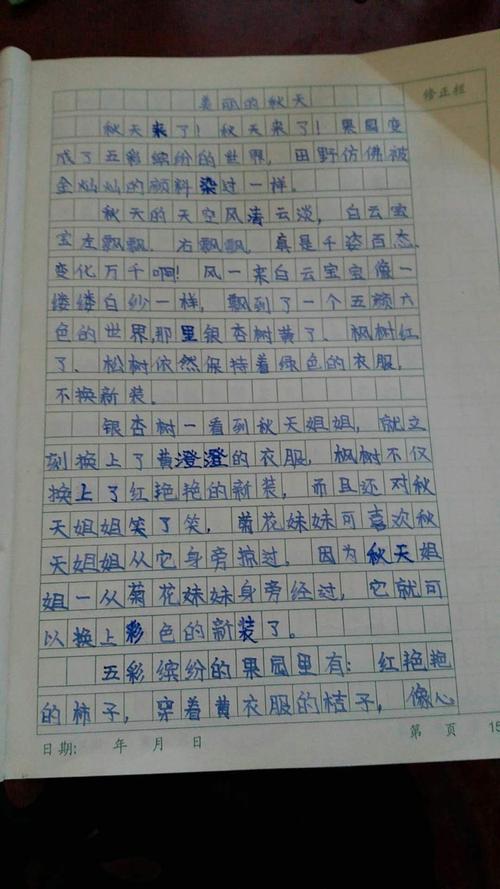 美丽的秋天
修正栏
秋天来了！秋天来了！果园变
成了五彩缤纷的世界，田野仿佛被
金灿灿的颜料染过一样。
秋天的天空风清云淡，白云宝
宝左飘飘、右飘飘、真是千姿百态、
变化万千啊！风一来白云宝宝像一
缕缕白纱一样，飘到了一个五颜六
色的世界,那里银杏树黄了、枫树红
了、松树依然保持着绿色的衣服，
不换新装。
银杏树一看到秋天姐姐，就立
刻换上了黄澄澄的衣服，枫树不仅
换上了红艳艳的新装，而且还对秋
天姐姐笑了笑，菊花妹妹可喜欢秋
天姐姐从它身旁掠过，因为秋天姐
姐一从菊花妹妹身旁经过，它就可
以换上彩色的新装了。
五彩缤纷的果园里有：红艳艳
的柿子，穿着黄衣服的桔子，像心
日期： 年 月 日 第 页 15